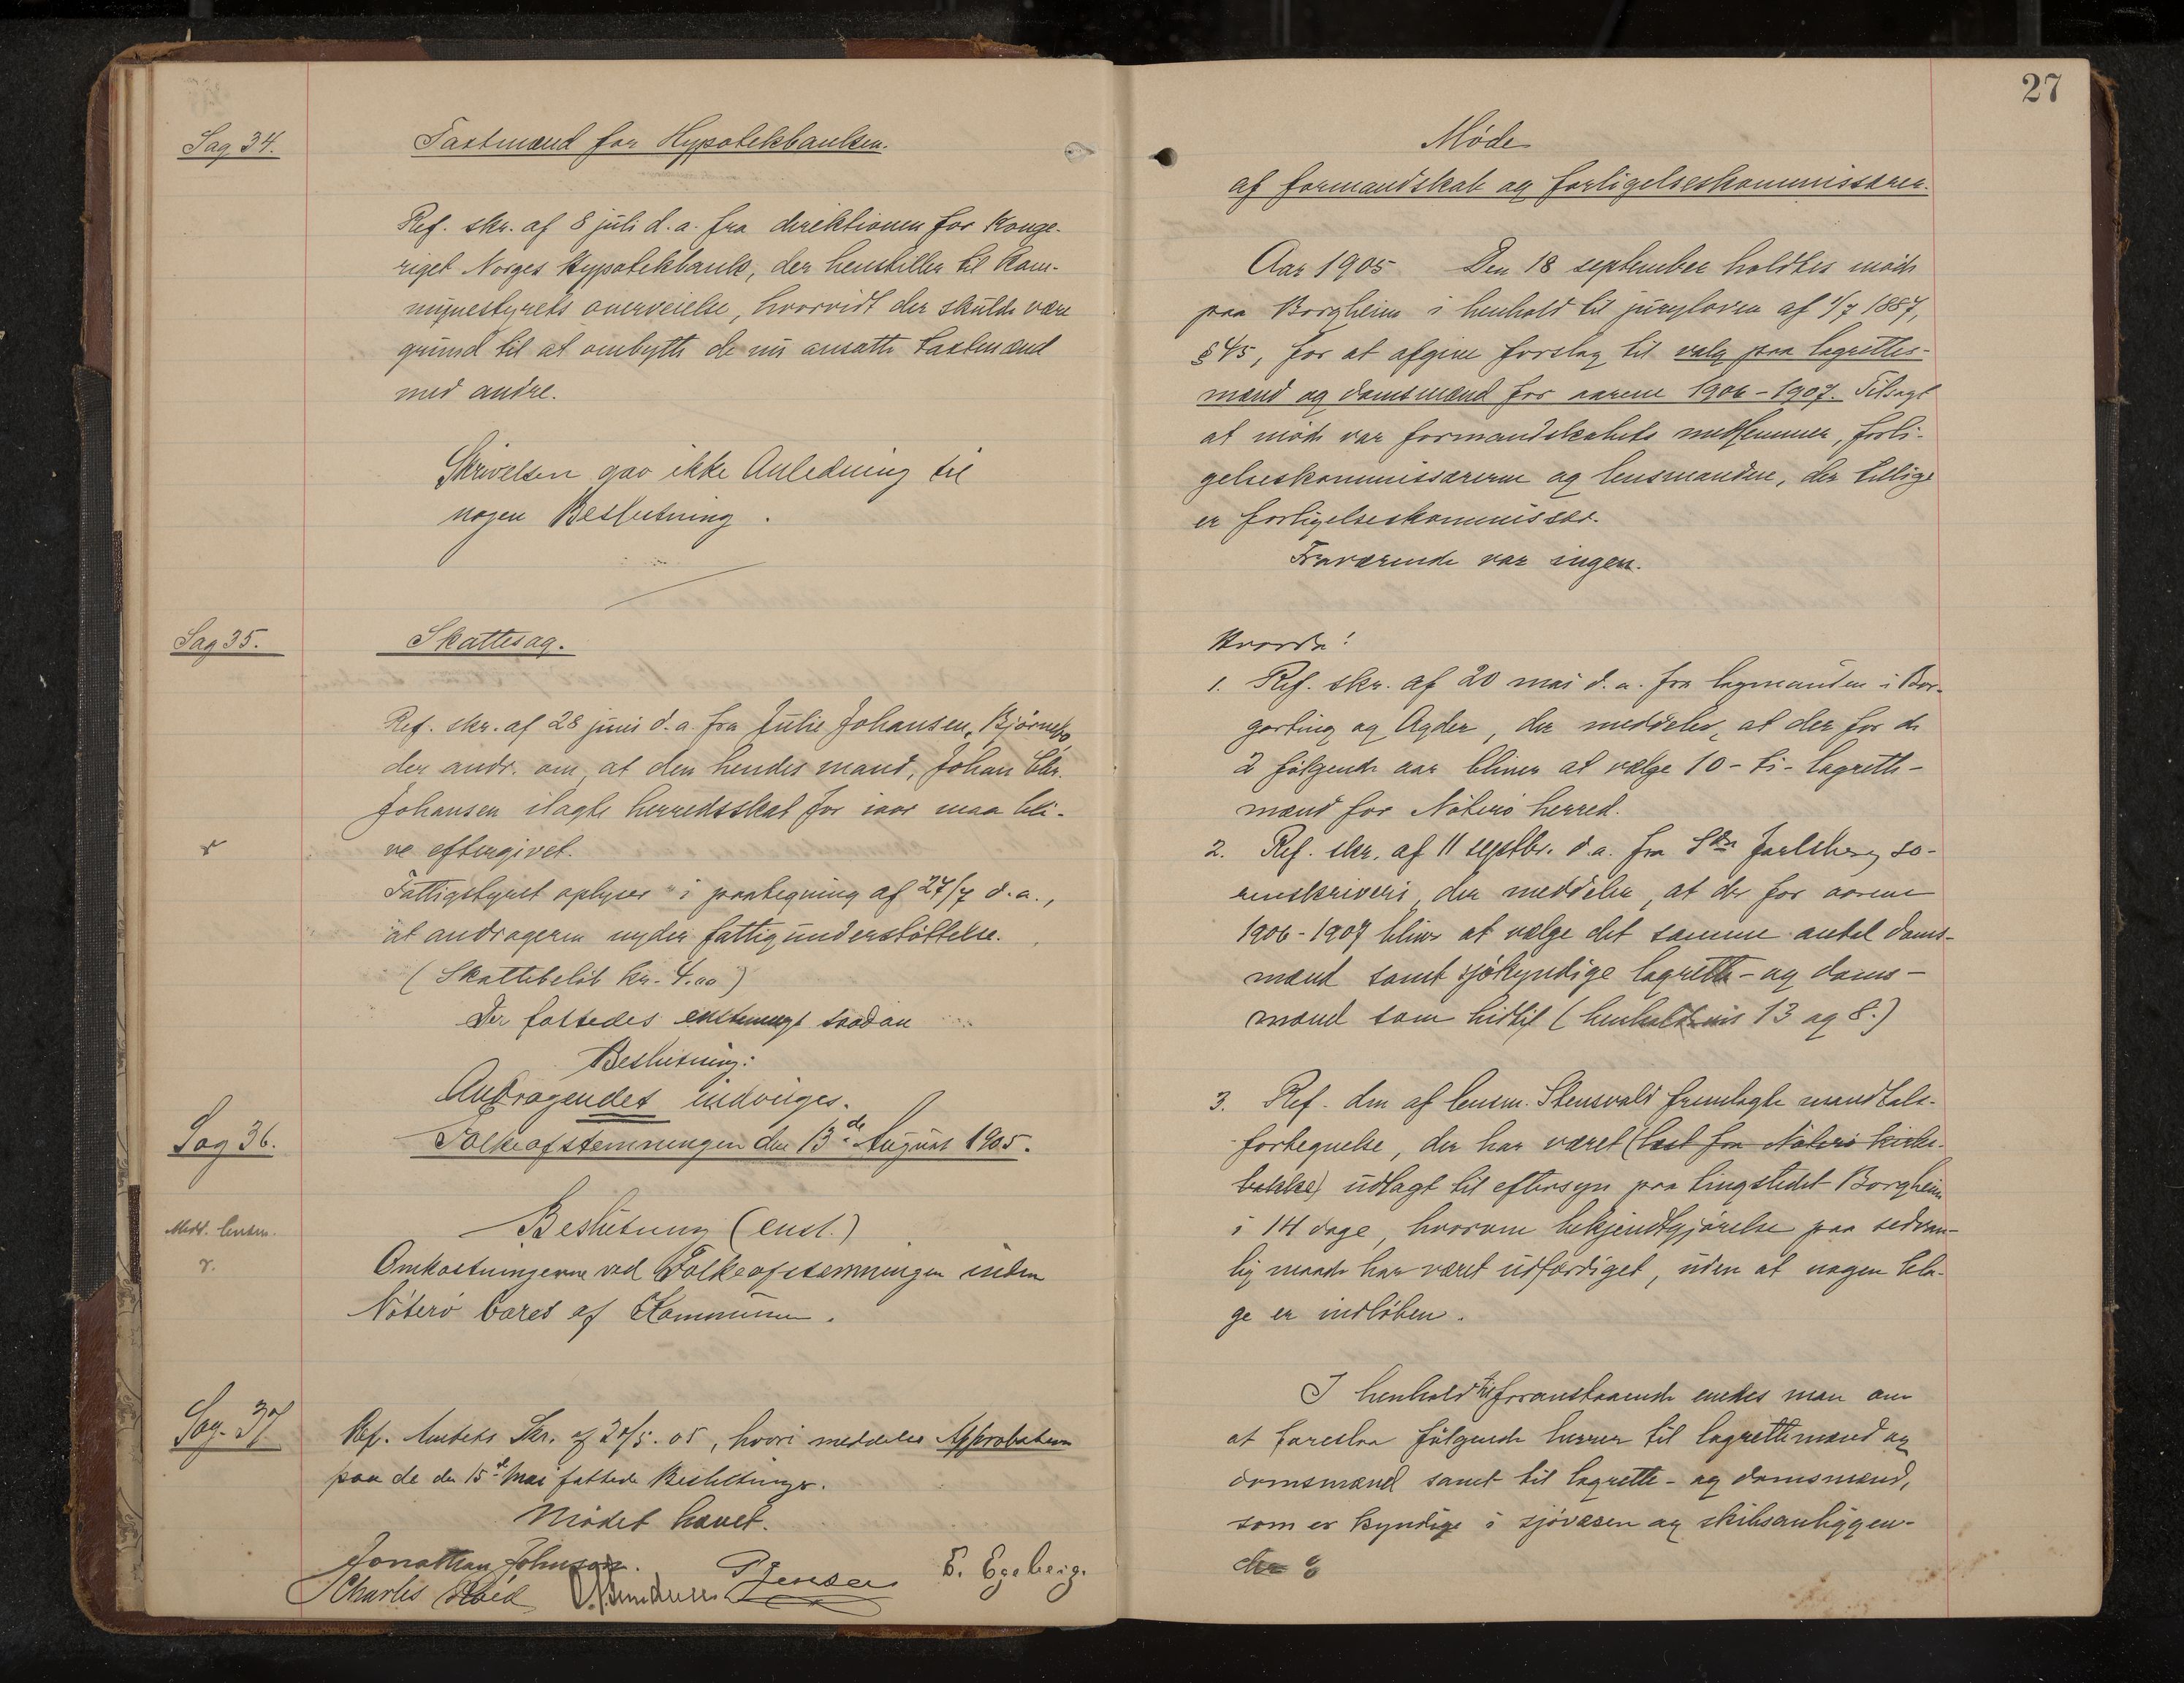 Sag 34.
Taxtmænd for Hypotekbanken.
Ref. skr. af 8 juli d.a. fra direktionen for Konge-
riget Norges Hypotekbank, der henstiller til Kom-
munestyrets overveielse, hvorvidt der skulde være
grund til at ombytte de nu ansatte taxtmænd
med andre.
Skrivelsen gav ikke Anledning til
nogen Beslutning.
Sag 35.
Skattesag.
Ref. skr. af 28 juni d.a. fra Julie Johansen, Bjørnebo
der andr. om, at den hendes mand, Johan Chr.
Johansen ilagte herredsskat for iaar maa bli-
ve eftergivet.
Fattigstyret oplyser i paategning af 27/7 d.a.,
at andrageren nyder fattigunderstøttelse.
(Skattebeløb kr. 4.00)
Der fattedes enstemmigt saadan
Beslutning:
Andragendet indvilges.
Sag 36.
Folkeafstemningen den 13de August 1905.
Medd. lensm.
Beslutning (enst.)
Omkostningerne ved Folkeafstemningen inden
Nøterø bæres af Kommunen.
Sag. 37
Ref. Amtets Skr. af 27/5. 05, hvori meddeles Approbation
paa de den 15de Mai fattede Beslutninger.
Mødet hævet.
Jonathan Johnson. P Jensen E. Egeberg.
Charles
27
Møde
af formandskab og forligelseskommissærer.
Aar 1905 Den 18 september holdtes møde
paa Borgheim i henhold til juryloven af 1/7 1887,
§ 45, for at afgive forslag til valg paa lagrettes-
mænd og domsmænd for aarene 1906-1907. Tilsagt
at møde var formandskabets medlemmer, forli-
gelseskommissærerne og lensmanden, der tillige
er forligelseskommissær.
Fraværende var ingen.
Hvorda!
1. Ref. skr. af 20 mai d.a. fra lagmanden i Bor-
garting og Agder, der meddeler, at der for de
2 følgende aar bliver at vælge 10 - ti - lagrette-
mænd for Nøterø herred.
2. Ref. skr. af 11 septbr. d.a. fra Sdre Jarlsberg so-
renskriveri, der meddeler, at der for aarene
1906-1907 bliver at vælge det samme antal doms-
mænd samt sjøkyndige lagrette- og doms-
mænd som hidtil (henholdsvis 13 og 8.)
3. Ref. den af lensm. Stensvald fremlagte mandtals-
fortegnelse, der har været (læst fra Nøterø kirke-
bakke) udlagt til eftersyn paa tingstedet Borgheim
i 14 dage, hvorom bekjendtgjørelse paa sedvan-
lig maade har været udfærdiget, uden at nogen kla-
ge er indløben.
I henhold til foranstaaende enedes man om
at foreslaa følgende herrer til lagrettemænd og
domsmænd samt til lagrette- og domsmænd,
som er kyndige i sjøvæsen og skibsanliggen-
der :